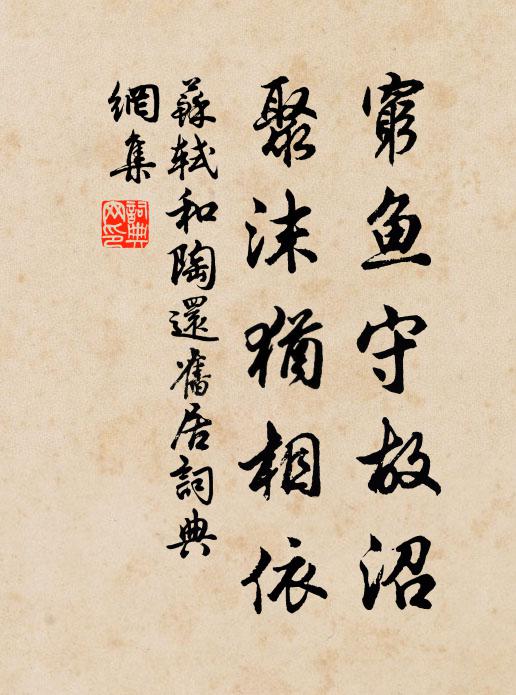 窮魚守故沼
聚沫猶相依
蘇軾和陶還舊居詞典
網集
詞典
网印